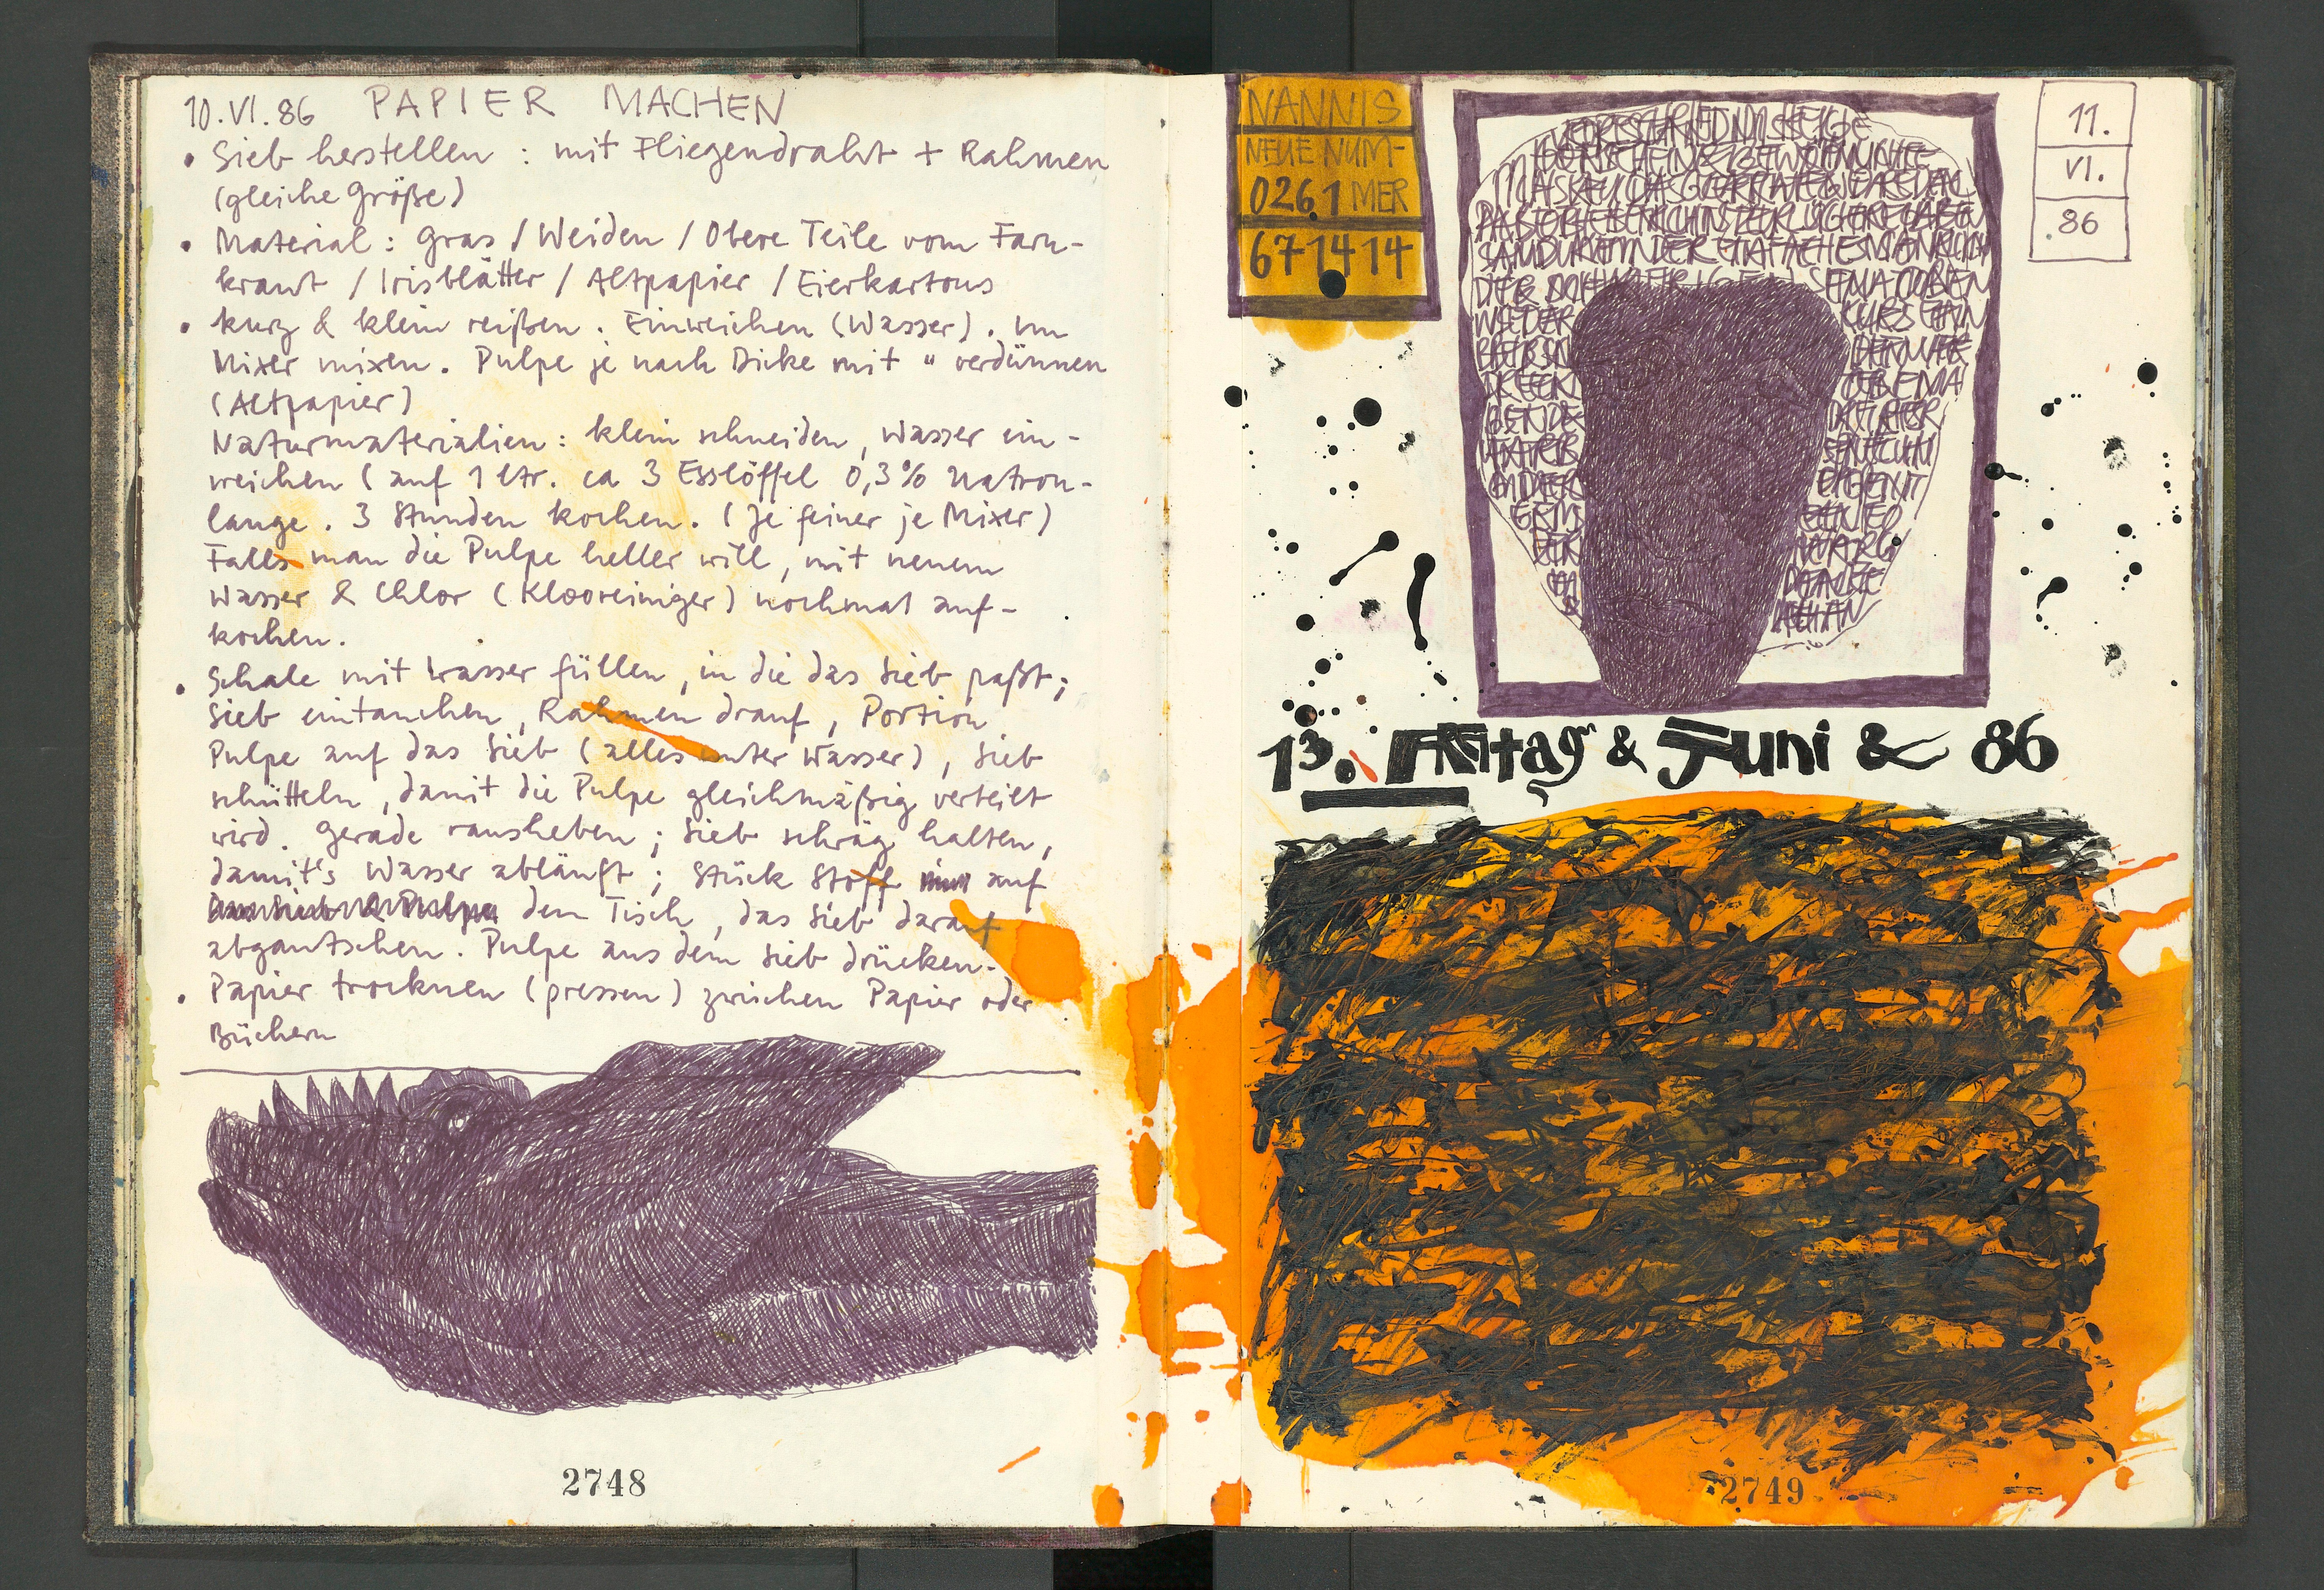 10.VI.86 PAPIER MACHEN
• Sieb herstellen : mit Fliegendraht + Rahmen
(gleiche Größe)
• Material : Gras / Weiden / Obere Teile vom Farn-
kraut / Irisblätter / Altpapier / Eierkartons
• kurz & klein reißen. Einweichen (Wasser). Im
Mixer mixen. Pulpe je nach Dicke mit " verdünnen
(Altpapier)
Naturmaterialien : klein schneiden, Wasser ein-
weichen (auf 1 ltr. ca 3 Esslöffel 0,3% Natron-
lauge. 3 Stunden kochen. (Je feiner je Mixer)
Falls man die Pulpe heller will, mit neuem
Wasser & Chlor (Klooreiniger) nochmal auf-
kochen.
• Schale mit Wasser füllen, in die das Sieb paßt;
Sieb eintauchen, Rahmen drauf, Portion
Pulpe auf das Sieb (alles unter Wasser), Sieb
schütteln, damit die Pulpe gleichmäßig verteilt
wird. Gerade rausheben; Sieb schräg halten,
damit's Wasser abläuft; Stück Stoff auf
den Tisch, das Sieb darauf
abgautschen. Pulpe aus dem Sieb drücken.
• Papier trocknen (pressen) zwischen Papier oder
Büchern
2748
NANNIS
NEUE NUM-
0261 MER
671414
11.
VI.
86
13. Freitag & Juni & 86
2749